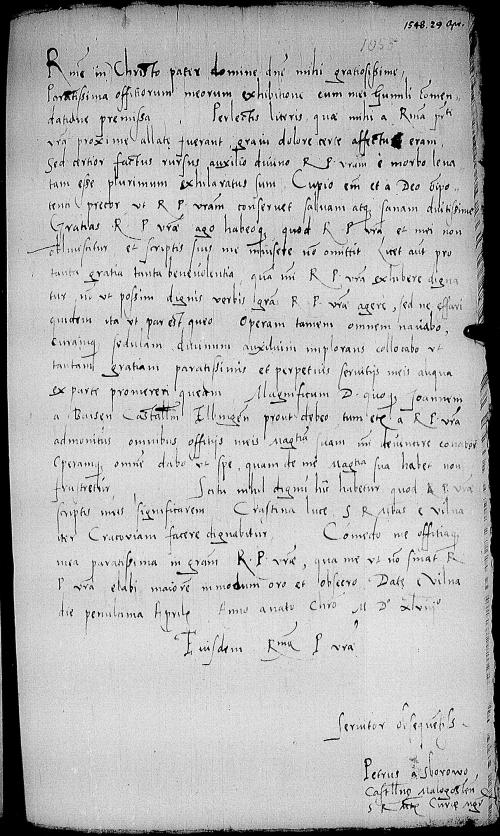 1548. 29 Apr.
1055
Rme in Christo pater domine dne mihi gratiosissime,
Paratissima offitiorum meorum exhibitione cum mei humili comen-
datione premissa. Perlectis literis, quae mihi a Rma P.
vra proxime allate fuerant graui dolore certe affectus eram,
Sed certior factus rursus auxilio diuino R P vram e morbo leua
tam esse plurimum exhilaratus sum. Cupio em et a Deo
precor vt R P. vram conseruet saluam atq sanam diutissime
Gratias R P vrae ago habeoq, quod R P vra et mei non
obliuiscitur et scriptis suis me inuisere no omittit
tanta gratia tanta beneuolentia, qua R P vra exhibere digna
tur, no vt possim dignis verbis R P. vrae agere, sed ne effari
quidem vta vt par est queo. Operam tamen omnem nauabo,
curamq sedulam diuinum auxilium implorans collocabo vt
tantam gratiam paratissimis et perpetuis seruitijs meis aliqua
ex parte promereri queam. Magnificum D. quoq Joannem
a Baisen Castell Elbingen prout debeo tum etia a R P. vra
admonitus omnibus offitijs meis suam deuincire conabor
Operamq omne dabo vt spe, quam de me sua habet non
frustretur. Scitu nihil dignu hic habetur quod R P vrae
scriptis meis significarem. Crastina luce S R Mtas e Vilna
iter Cracouiam facere dignabitur. Comedo me offitiaq
mea paratissima in gram R P. vrae, qua me vt no sinat R
P vra elabi maiorem in modum oro et obsecro. Dat Vilna
die penultima Aprilis Anno a nato Chro M D xlviij
Eiusdem Rmae P vrae
Seruitor
Petrus a Sborowo
Castell Malogosten
S R Curie